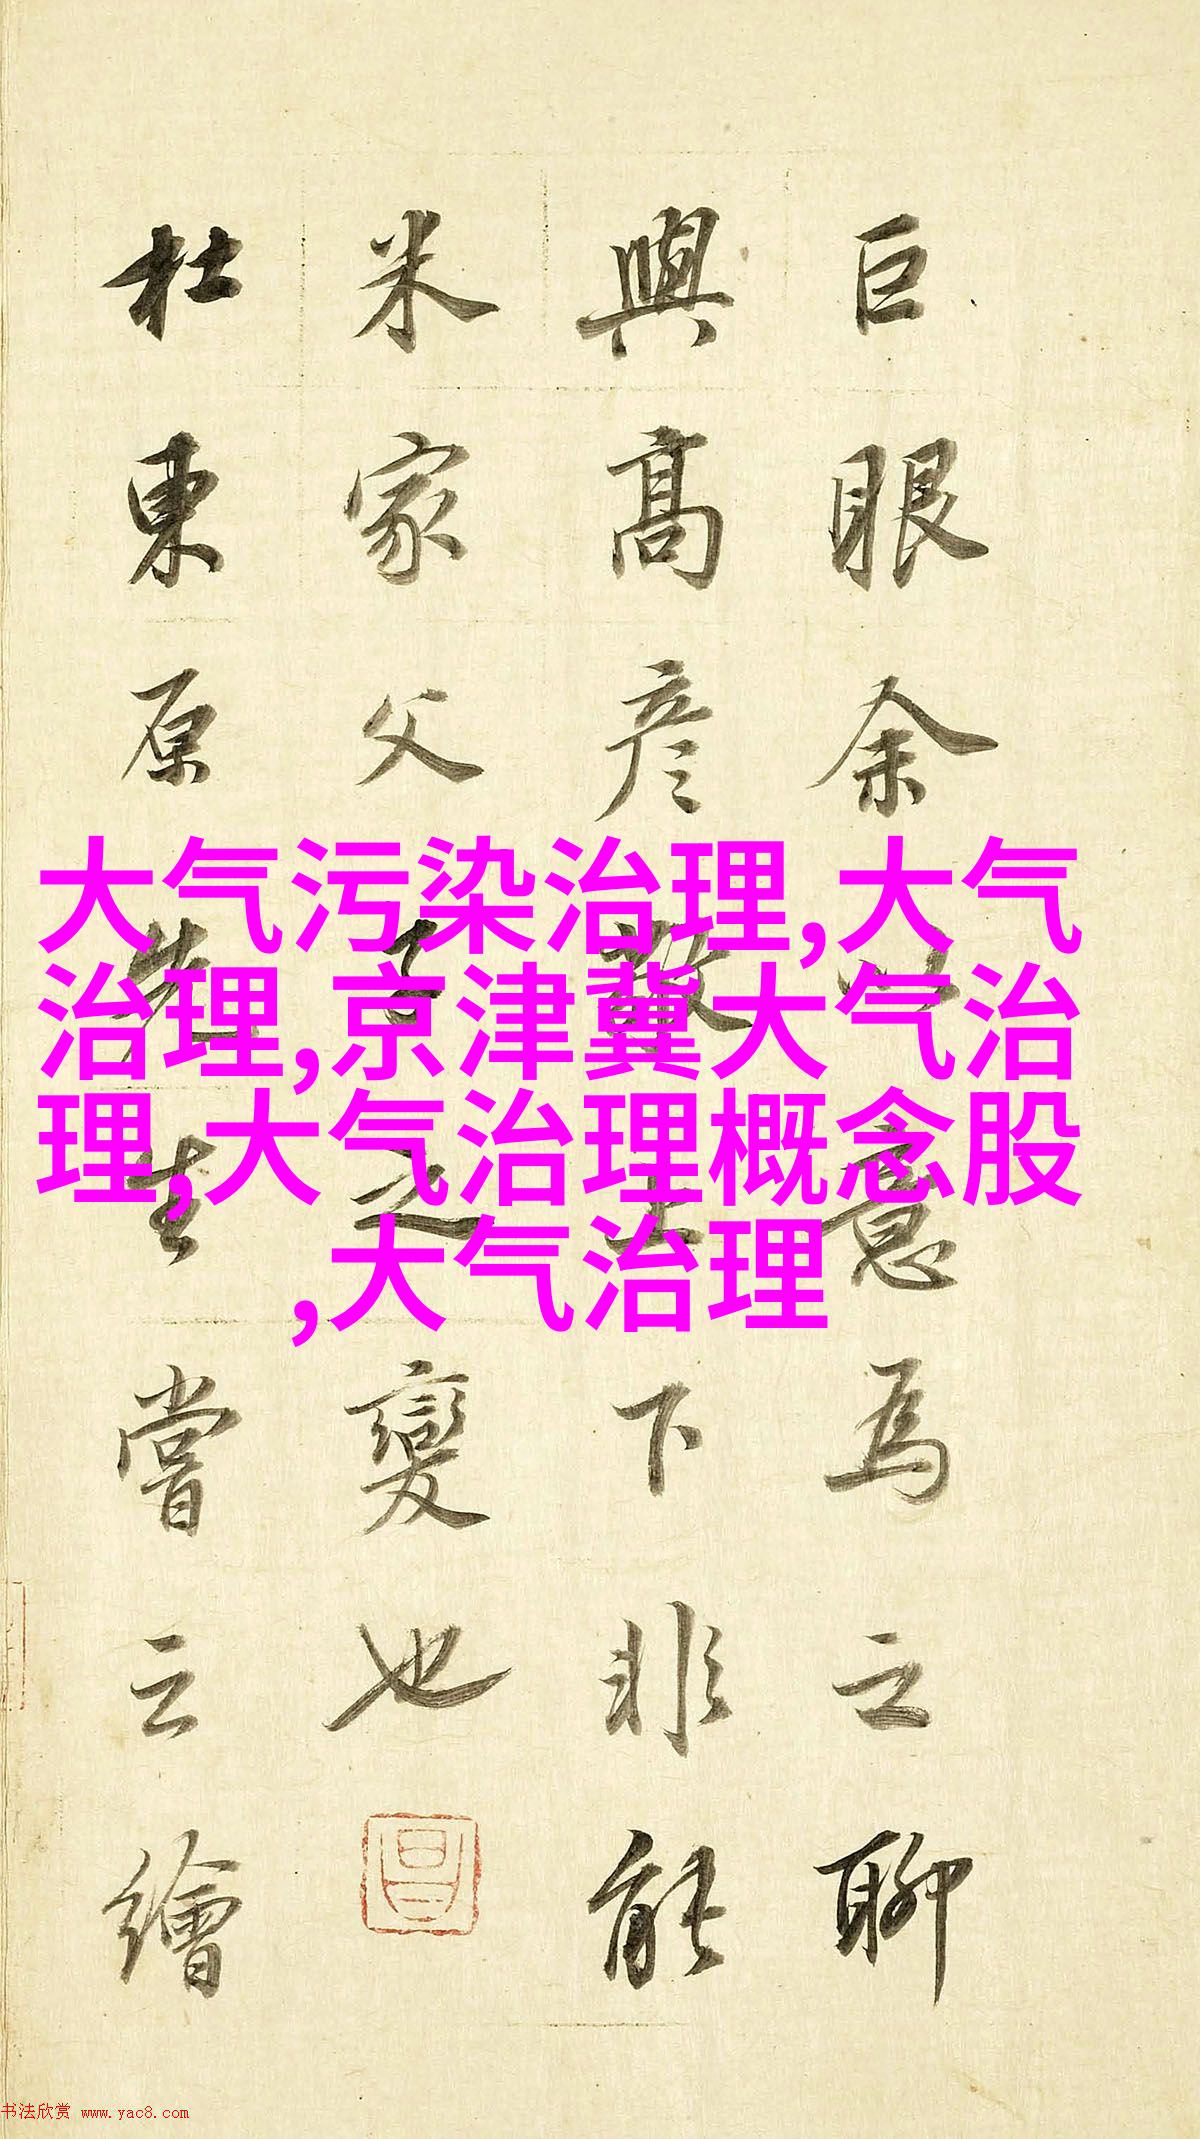 巨眼余以意為之聊
與高彥敬上下非能
米家父子之變也
杜東原先生嘗云繪
大气污染治理,大气
治理,京津冀大气治
理,大气治理概念股
,大气治理
书法欣赏 www.yac8.com